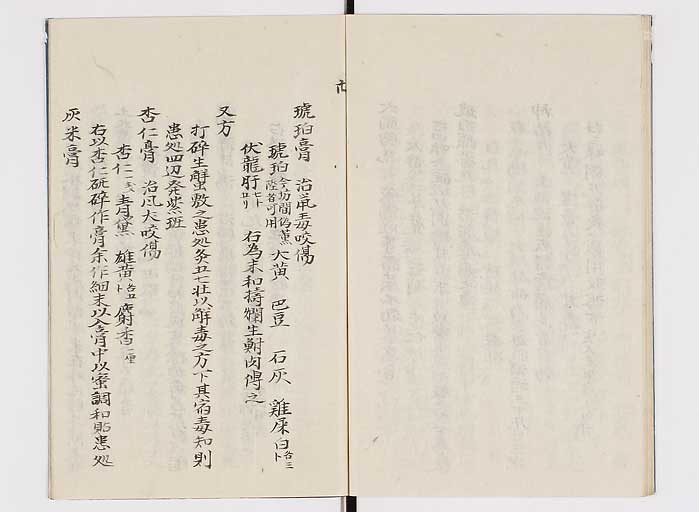 琥珀膏　治鼠毒咬傷
琥珀　大黄　巴豆　石灰　雞屎白各三卜
伏龍肝七卜五リ　右為末和擣爛生鮒肉傅之
又方
打碎生蟹敷之患処灸五七壮以解毒之方下其宿毒知則
患処四辺発紫斑
杏仁膏　治凡犬咬傷
杏仁一戔　青黛　雄黄各五卜　麝香一厘
右以杏仁砥碎作膏余作細末以入膏中以蜜調和貼患処
灰米膏